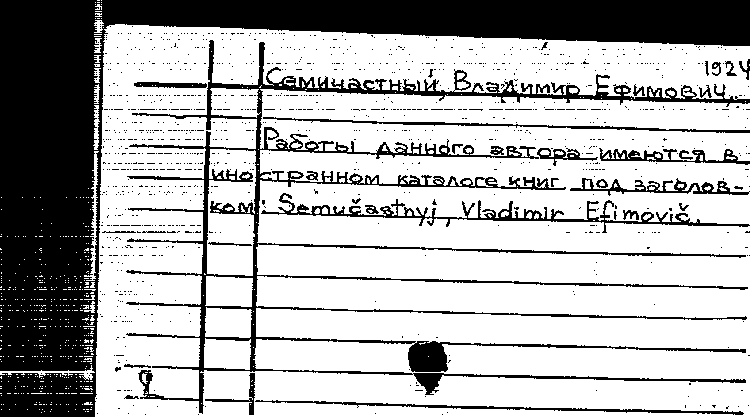 1924
Семичастный, Владимир Ефимович,
Работы данного автора имеются в
иностранном каталоге книг под заголов-
ком: Semučastnyj, Vladimir Efimovič.